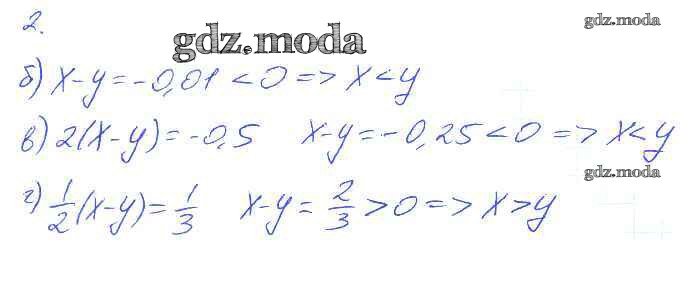 2.
gdz.moda
gdz.moda
б) x-y=-0,01<0=>x<y
в) 2(x-y)=-0,5 x-y=-0,25<0=>x<y
gdz.moda
г) 1/2(x-y)=1/3 x-y=2/3>0=>x>y